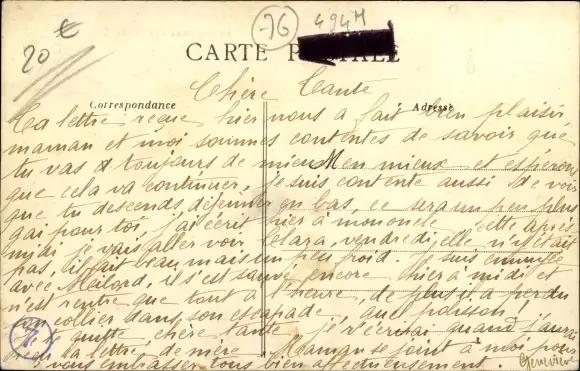 76 494H
20 €
CARTE POSTALE
Correspondance Adresse
Chère Tante
Ta lettre reçue hier nous a fait bien plaisir,
maman et moi sommes contentes de savoir que
tu vas toujours de mieux en mieux et espérons
que cela va continuer, je suis contente aussi de voir
que tu descends déjeuner en bas, ce sera un peu plus
gai pour toi, j'ai écrit hier à mononcle, cette après
midi je vais aller voir Clara, vendredi elle n'y était
pas, il fait beau mais un peu froid. Je suis ennuyée
avec Malord, il s'est sauvé encore hier à midi et
n'est rentré que tout à l'heure, de plus il a perdu
son collier dans son escapade, quel poison!
Je te quitte, chère tante, je r'écrirai quand j'aurai
reçu ta lettre, de mère Maman se joint à moi pour
vous embrasser tous bien affectueusement.
Geneviève